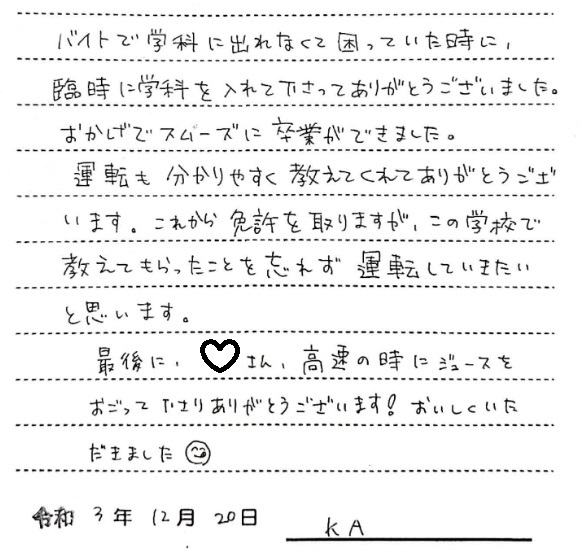 バイトで学科に出れなくて困っていた時に、
臨時に学科を入れて下さってありがとうございました。
おかげでスムーズに卒業ができました。
運転も分かりやすく教えてくれてありがとうござ
います。これから免許を取りますが、この学校で
教えてもらったことを忘れず運転していきたい
と思います。
最後に、♡さん、高速の時にジュースを
おごって下さりありがとうございます!おいしくいた
だきました
令和 3年 12月 20日 KA